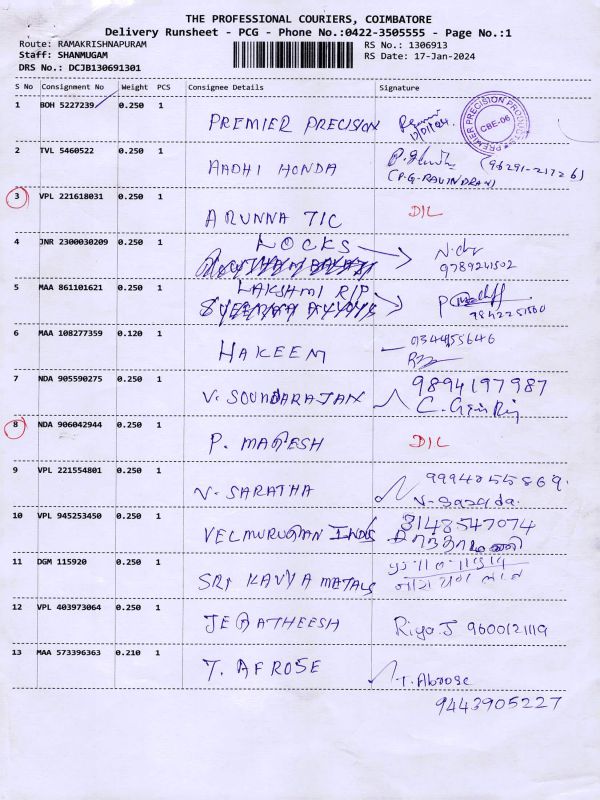 THE PROFESSIONAL COURIERS, COIMBATORE
Delivery Runsheet - PCG - Phone No.:0422-3505555 - Page No.:1
Route: RAMAKRISHNAPURAM RS No.: 1306913
Staff: SHANMUGAM RS Date: 17-Jan-2024
DRS No.: DCJB130691301
S No Consignment No Weight PCS Consignee Details Signature
1 BOH 5227239 0.250 1 PREMIER PRECISION
PREMIER PRECISION PRODUCTS
CBE-06
2 TVL 5460522 0.250 1 AADHI HONDA
(P.G-RAVINDRAN)
3 VPL 221618031 0.250 1 ARUNNA TIC D/L
4 JNR 2300030209 0.250 1 LOCKS
9789241502
5 MAA 861101621 0.250 1 LAKSHMI R/P
6 MAA 108277359 0.120 1 HAKEEM
7 NDA 905590275 0.250 1 V. SOUNDARAJAN 9894197987
8 NDA 906042944 0.250 1 P. MAGESH D/L
9 VPL 221554801 0.250 1 V. SARATHA 9994255869.
10 VPL 945253450 0.250 1 VELMURUGAN INDS 3148547074
11 DGM 115920 0.250 1 SRI KAVYA METALS
12 VPL 403973064 0.250 1 JEBATHEESH Riya.J 9600121119
13 MAA 573396363 0.210 1 T. AFROSE T. Abrose
9443905227